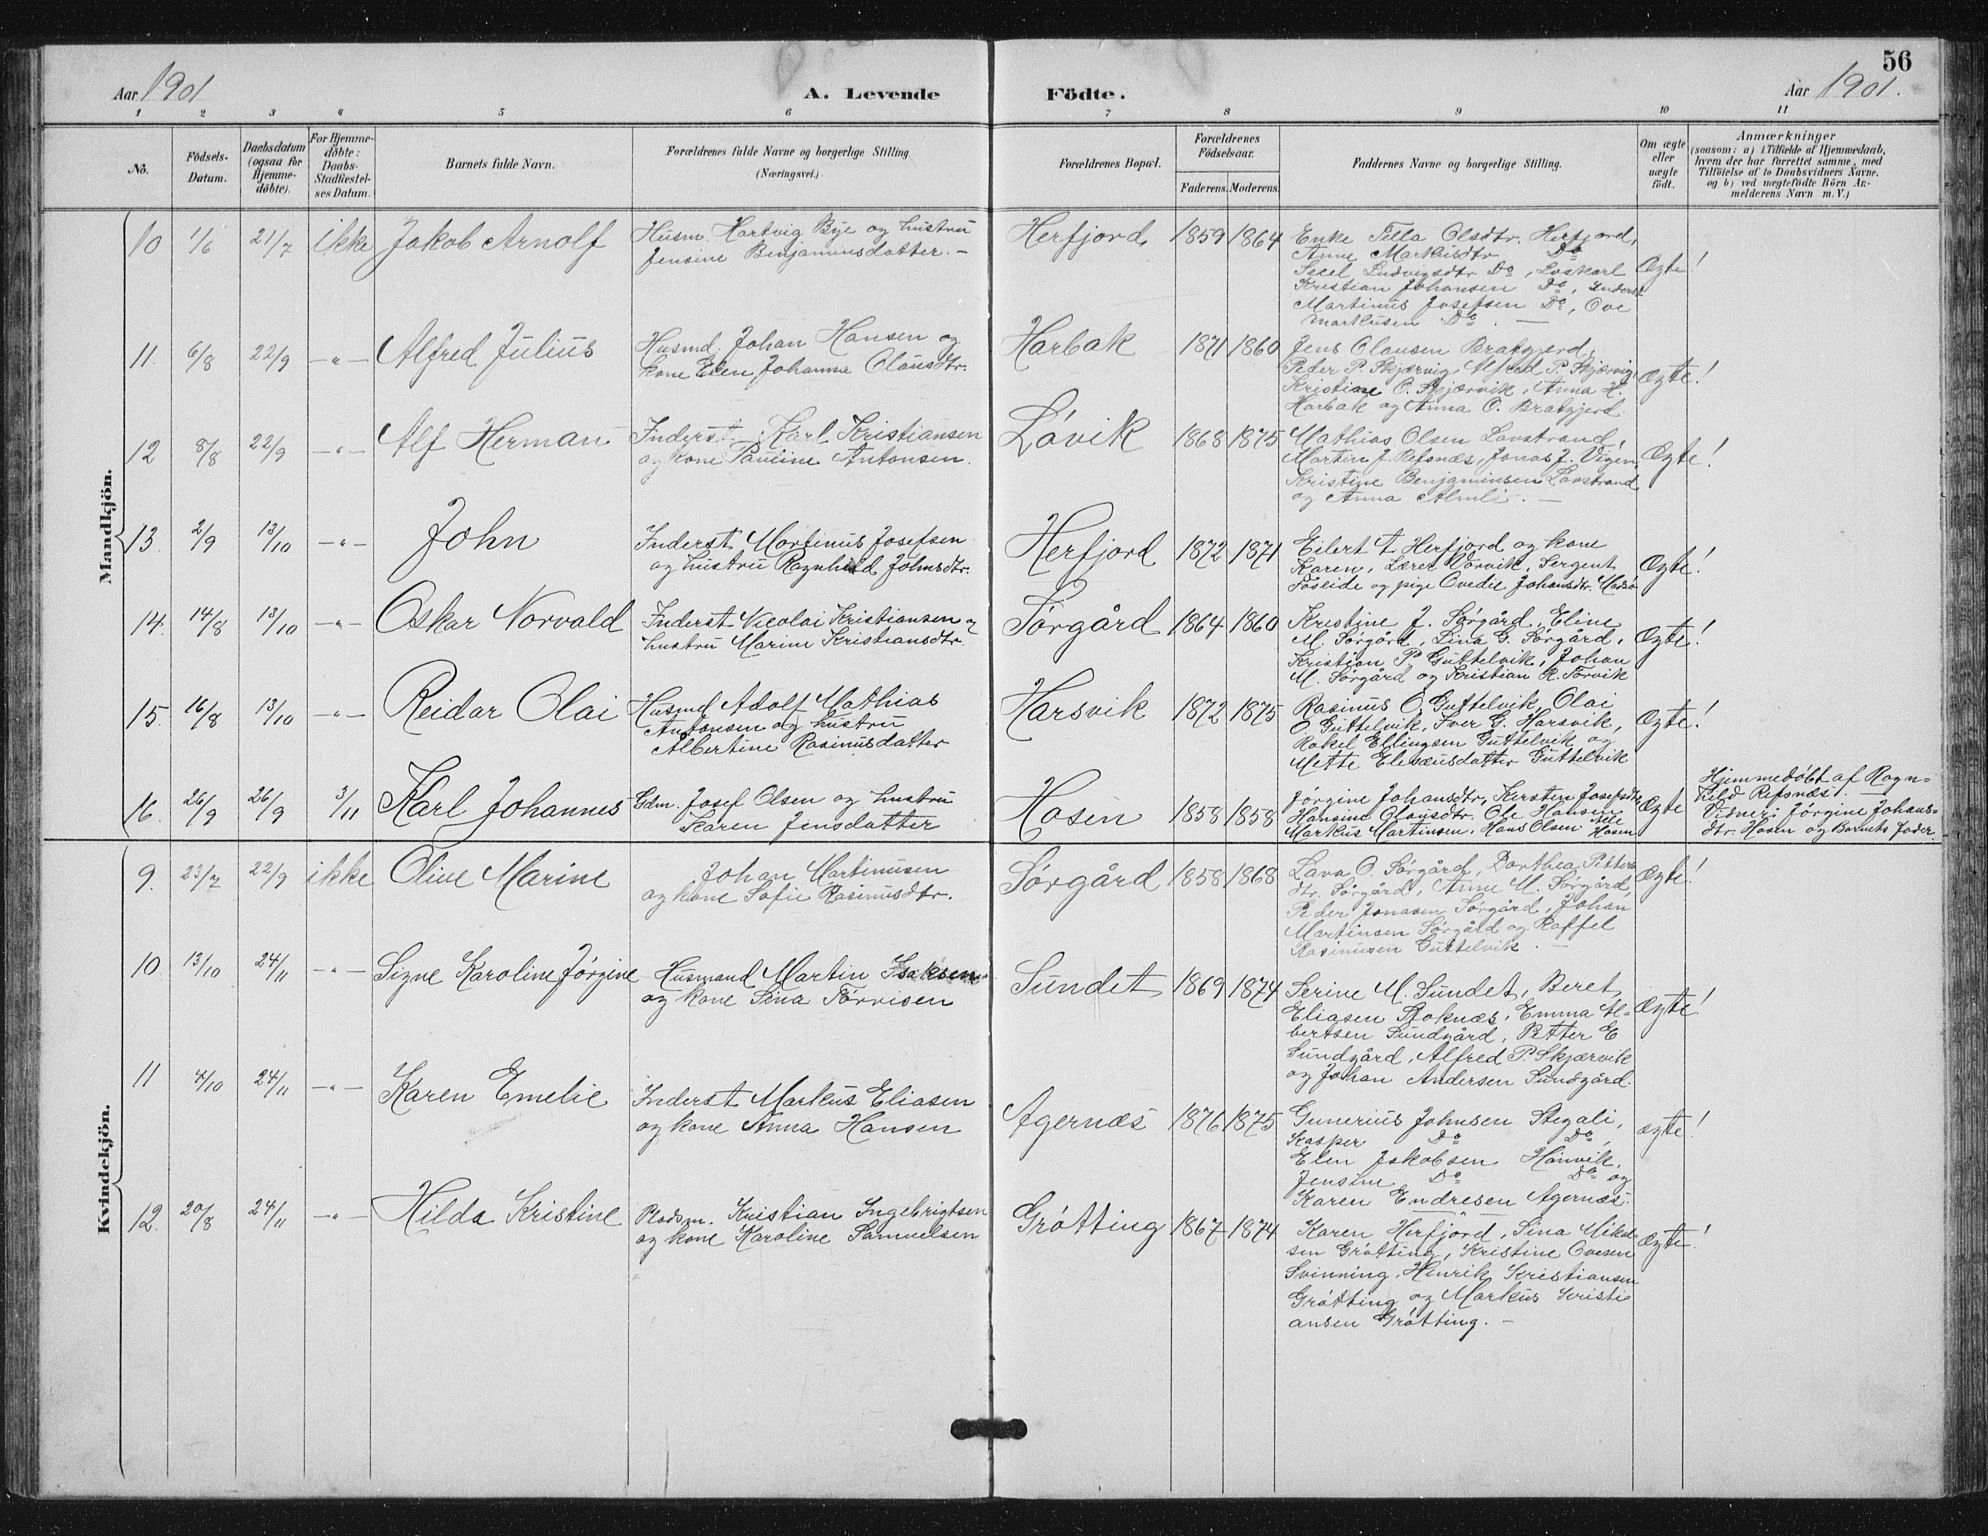 56
Aar 1901
A. Levende
Födte.
Aar 1901.
1 2 3 4 5 6 7 8 9 10 11
No.
Födsels-
Datum.
Daabsdatum
(ogsaa for
Hjemme-
döbte).
For Hjemme-
döbte:
Daabs-
Stadfæstel-
ses Datum.
Barnets fulde Navn.
Forældrenes fulde Navne og borgerlige Stilling.
(Næringsvei.)
Forældrenes Bopæl.
Forældrenes
Födselsaar.
Faderens. Moderens.
Faddernes Navne og borgerlige Stilling.
Om ægte
eller
uægte
födt.
Anmærkninger
(saasom: a) i Tilfælde af Hjemmedaab,
hvem der har forrettet samme, med
Tilföielse af to Daabsvidners Navne.
og b) ved uægtefödte Börn An-
melderens Navn m. V.)
Mandkjön.
10 1/6 21/7 ikke Jakob Arnolf
Husm. Hartvig Bye og hustru
Jensine Benjaminsdatter. -
Herfjord 1859 1864
Enke Olsdtr. Herfjord,
Anne Markusdtr Do
Ludvigsdtr Do, Løskarl
Kristian Johansen Do, Inderst
Martinus Josefsen Do, Ove
Markusen Do. -
Ægte!
11. 6/8 22/9 -"- Alfred Julius
Husmd. Johan Hansen og
kone Elen Johanna Olausdtr.
Harbak 1871 1860
Jens Olausen Bratgjerd,
Peder P. Skjærvig, Alfred P. Skjærvig,
Kristine O. Skjærvik, Anna H.
Harbak og Anna O. Bratgjerd.
Ægte!
12 8/8 22/9 -"- Alf Herman
Inderst Karl Kristiansen
og kone Pauline Antonsen.
Løvik 1868 1875
Mathias Olsen Lavstrand,
Martin J. Refsnæs, Jonas J. Vigen,
Kristine Benjaminsen Lavstrand
og Anna Almli. -
Ægte!
13. 2/9 13/10 -"- John
Inderst Martinus Josefsen
og hustru Ragnhild Johnsdtr.
Herfjord 1872 1871
Eilert T Herfjord og kone
Karen, Lærer Vorvik, Sergent
Foseide og pige Ovedie Johansdtr.
Ægte!
14. 14/8 13/10 -"- Oskar Norvald
Inderst Nicolai Kristiansen og
hustru Marine Kristiansdtr.
Sørgård 1864 1860
Kristine J. Sørgård, Eline
M. Sørgård, Lina G. Sørgård,
Kristian P. Guttelvik, Johan
M. Sørgård og Kristian R. Torvik
Ægte!
15. 16/8 13/10 -"- Reidar Olai
Husmd Adolf Mathias
Antonsen og hustru
Albertine Rasmusdatter
Harsvik 1872 1875
Rasmus O. Guttelvik, Olai
O Guttelvik, Iver G. Harsvik,
Rakel Ellingsen Guttelvik og
Mette Elesæusdatter Guttelvik
Ægte!
16. 26/9 26/9 3/11 Karl Johannes
Gdm. Josef Olsen og hustru
Karen Jensdatter
Hosen 1858 1858
Jørgine Johansdtr, Kersten Josefsdtr,
Hansine Olausdtr. Ole Hansen
Markus Martinsen, Hans Olsen alle Hosen
Ægte
Hjemmedøbt af Ragn-
hild Refsnæs. -
Vidner: Jørgine Johans-
dtr. Hosen og Barnets fader.
Kvindekjön.
9. 23/7 22/9 ikke Olive Marine
Johan Martinusen
og kone Sofie Rasmusdtr.
Sørgård 1858 1868
Lava O. Sørgård, Dorthea Petters
dtr. Sørgård, Anne M. Sørgård,
Peder Jonasen Sørgård, Johan
Martinsen Sørgård og Raffel
Rasmusen Guttelvik. -
Ægte!
10. 13/10 24/11 -"- Signe Karoline Jørgine
Husmand Martin Isaksen
og kone Sina Tørrisen
Sundet 1869 1874
Serine M. Sundet, Beret
Eliasen Stoknæs, Emma Al-
bertsen Sundgård, Petter E
Sundgård, Alfred P. Skjærvik
og Johan Andersen Sundgård.
Ægte!
11 4/10 24/11 -"- Karen Emelie
Inderst Markus Eliasen
og kone Anna Hansen
Agernæs 1876 1875
Gunerius Johnsen Stegali,
Kasper Do Do,
Elen Jakobsen Hanvik,
Jensine Do Do og
Karen Endresen Agernæs.
ægte!
12. 20/8 24/11 -"- Hilda Kristine
Pladsm. Kristian Ingebrigtsen
og kone Karoline Samuelsen
Grøtting 1867 1874
Karen Herfjord, Sina Mikal
sen Grøtting, Kristine Ovesen
Svinning, Henrik Kristiansen
Grøtting og Markus Kristi
ansen Grøtting. -
Ægte!